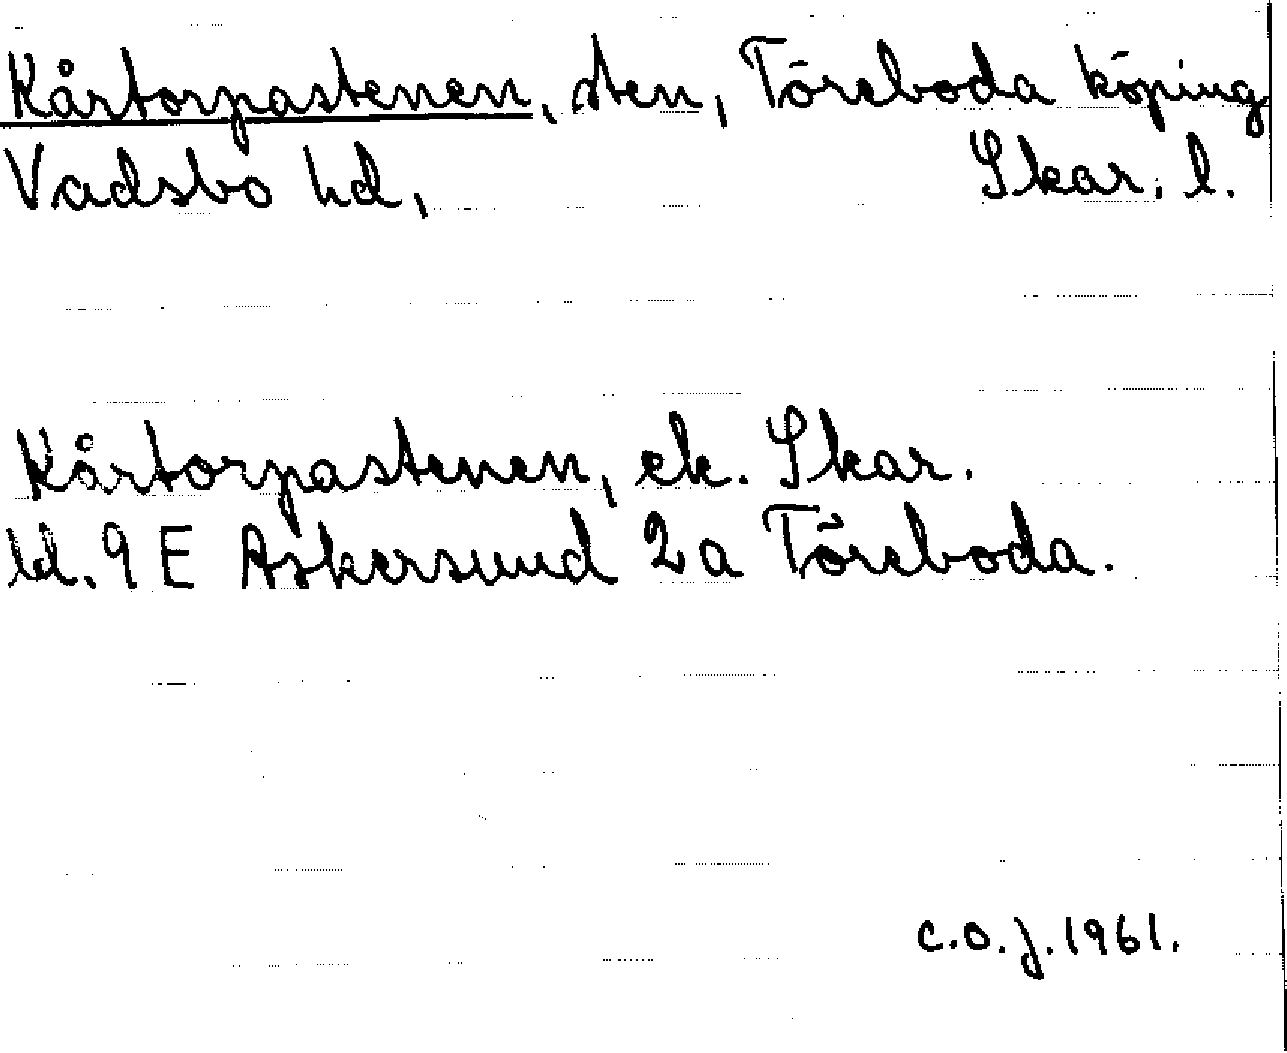 Kårtorpastenen, sten, Töreboda köping
Vadsbo hd, Skar. l.
Kårtorpastenen, ek. Skar.
bl. 9 E Askersund 2 a Töreboda.
C.O.J. 1961.